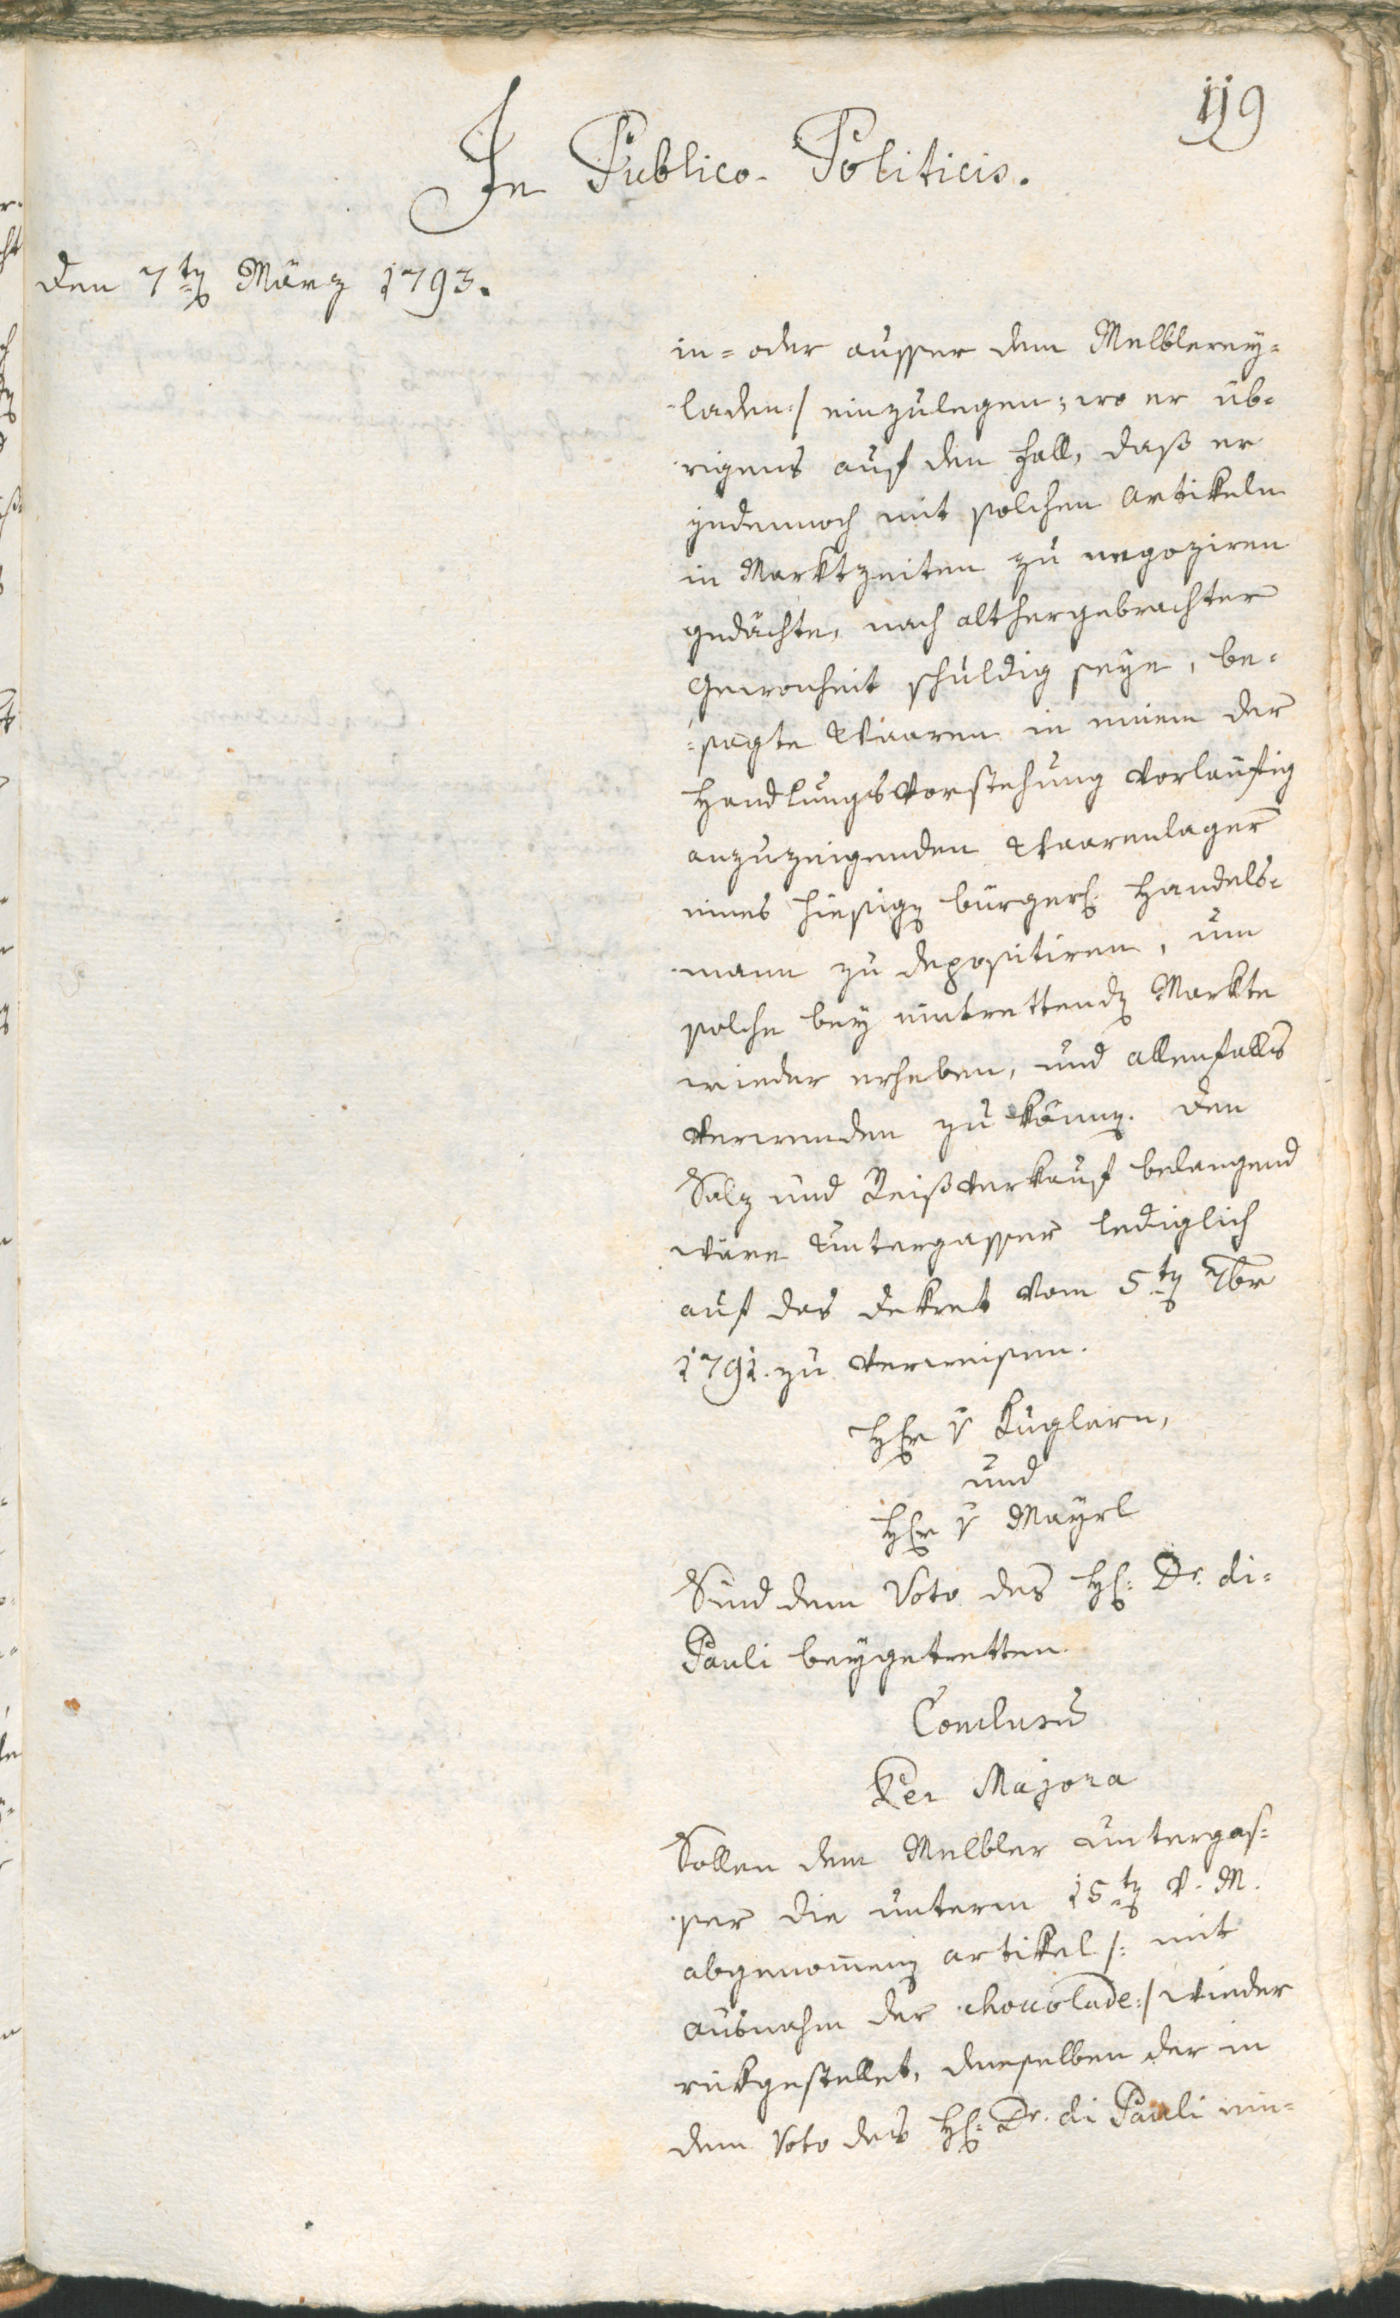 119
In Publico-Politicis.
den 7ten März 1793.
in- oder ausser dem Melblerey-
laden:/ einzulegen; wo er üb-
rigens auf den Fall, daß er
jedennoch mit solchen Artikeln
in Marktzeiten zu negoziren
gedächte, nach althergebrachter
Gewonheit schuldig seye, be-
sagte Waaren in einem der
Handlungsvorstehung vorläufig
anzuzeigenden Waarenlager
eines hiesigen bürgerl. Handels-
mann zu depositiren, um
solche bey eintrettenden Markte
wieder erheben, und allenfalls
verwenden zu können. Den
Salz und Reißverkauf belangend
wäre Untergasser lediglich
auf das Dekret vom 5ten 7br
1791. zu verweisen.
Herr v Kuglern,
und
Herr v Mayrl
Sind dem Voto des H: Dr. di-
Pauli beygetretten.
Conclusum
Per Majora
Sollen dem Melbler Untergas-
ser die unterm 15ten v. M.
abgenommenen Artikel /: mit
Ausnahm der Chocolade:/ wieder
rükgestellet, demselben der in
dem Voto des H: Dr. di Pauli ein-